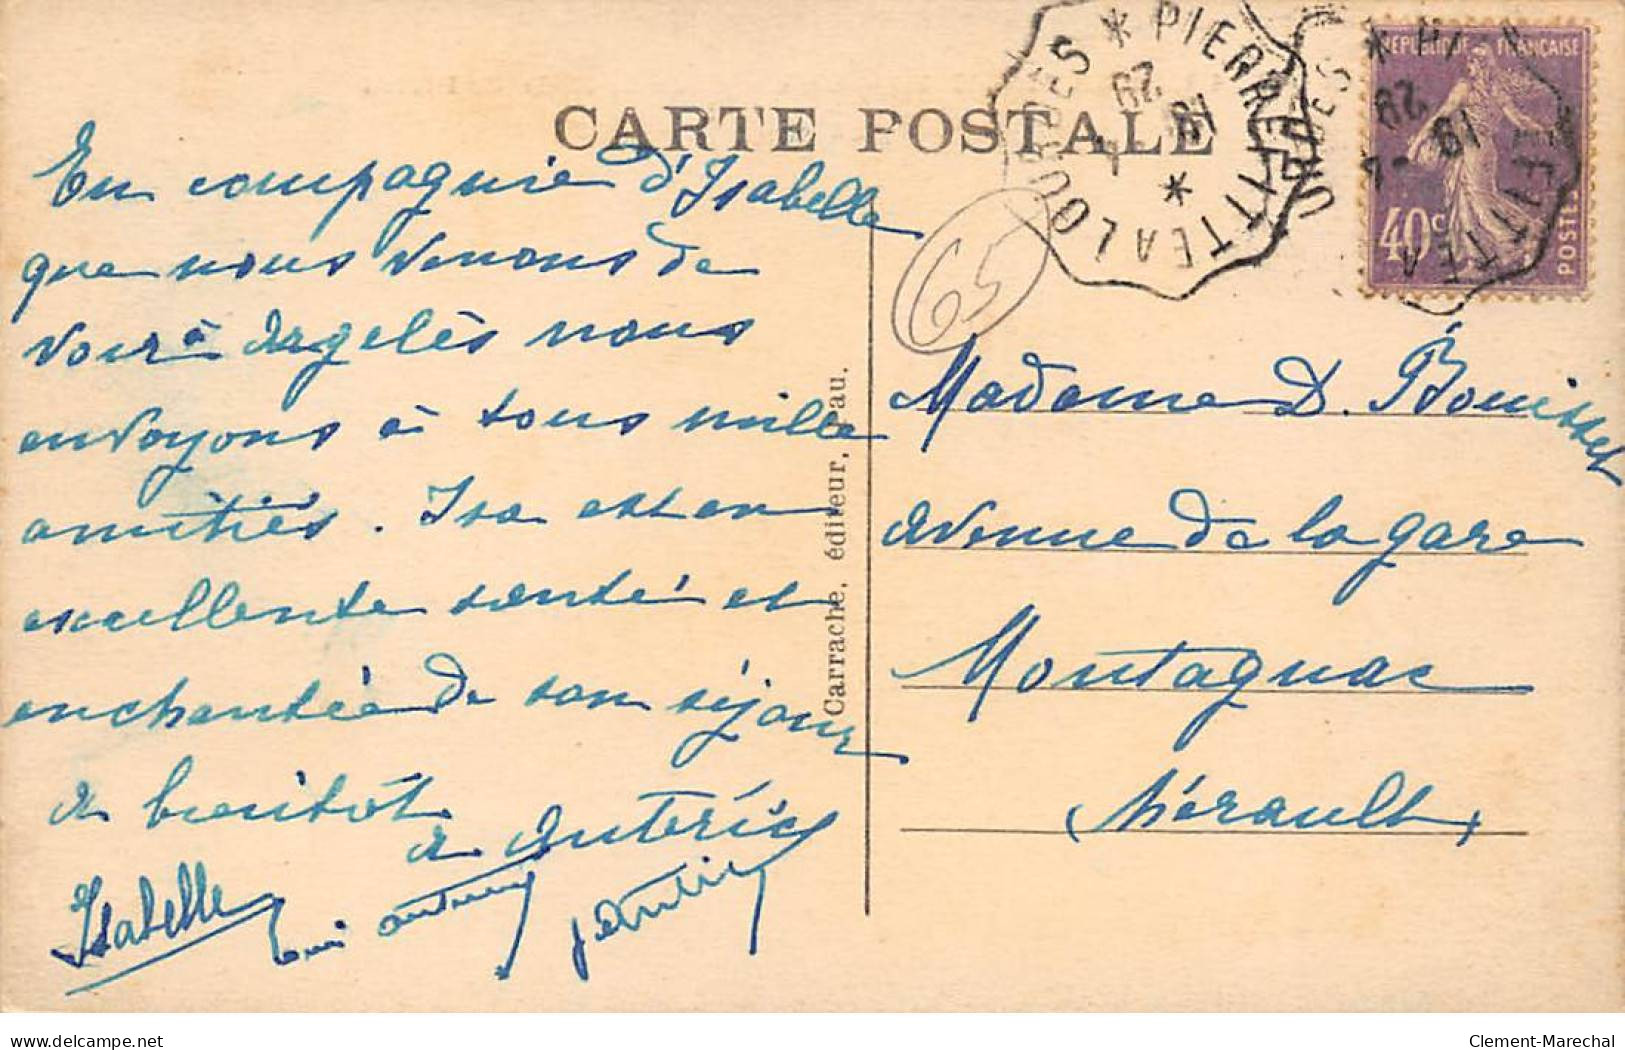 CARTE POSTALE
En compagnie d'Isabelle
que nous venons de
voir à Argelès nous
envoyons à tous mille
amitiés. Isa est en
excellente santé et
enchantée de son séjour
à bientôt
A Auteric
Isabelle
Carrache, éditeur, Pau.
PIERREFITTE A LOURDES
29
REPUBLIQUE FRANÇAISE
40c
POSTES
65
Madame D. Bouisset
Avenue de la gare
Montagnac
(Hérault)
delcampe.net
Clement-Marechal